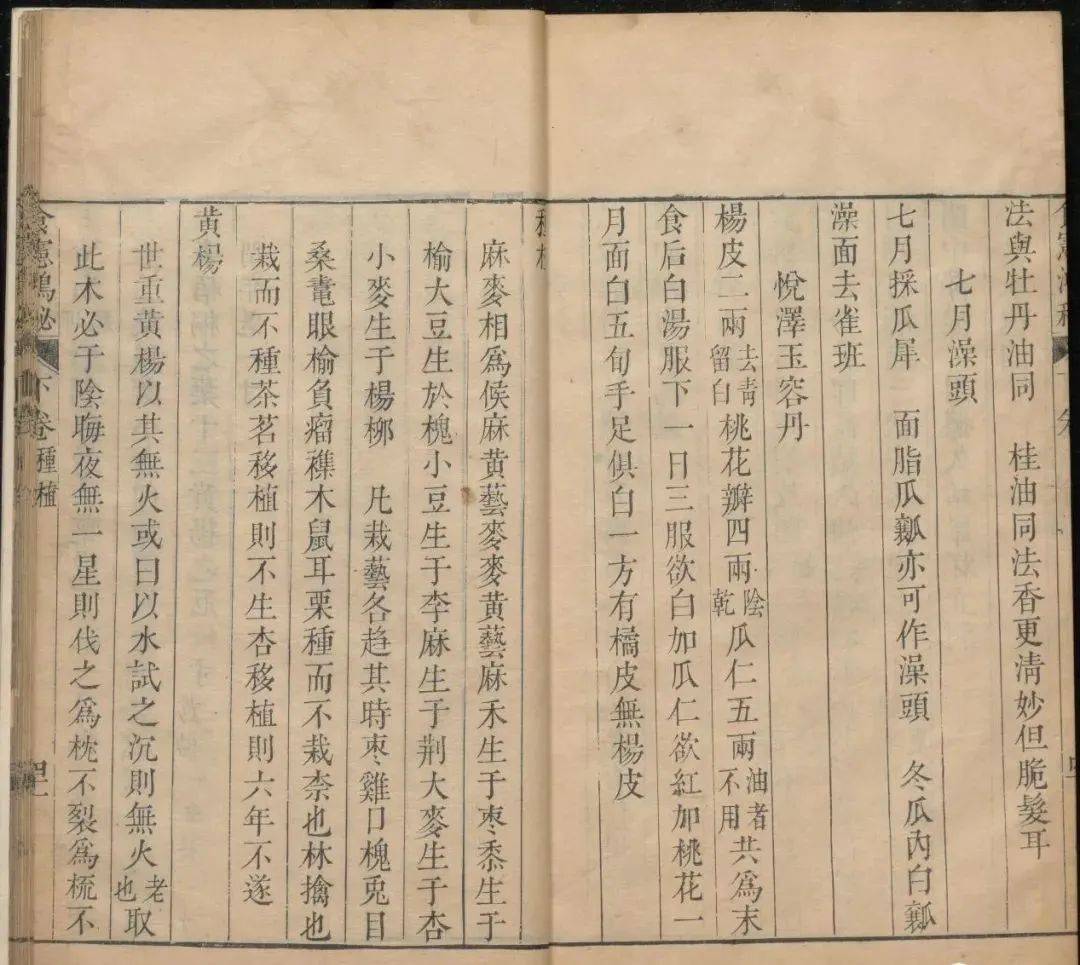 法與牡丹油同　桂油同法香更淸妙但脆髮耳
七月澡頭
七月採瓜犀　面脂瓜瓤亦可作澡頭　冬瓜內白瓤
澡面去雀班
悅澤玉容丹
楊皮二兩去靑留白桃花瓣四兩陰乾瓜仁五兩油者不用共爲末
食后白湯服下一日三服欲白加瓜仁欲紅加桃花一
月面白五旬手足俱白一方有橘皮無楊皮
種植
麻麥相爲候麻黃藝麥麥黃藝麻禾生于棗黍生于
榆大豆生於槐小豆生于李麻生于荆大麥生于杏
小麥生于楊柳　凡栽藝各趋其時棗雞口槐兎目
桑鼃眼榆負瘤襍木鼠耳栗種而不栽柰也林擒也
栽而不種茶茗移植則不生杏移植則六年不遂
黃楊
世重黃楊以其無火或曰以水試之沉則無火也老取
此木必于陰晦夜無一星則伐之爲枕不裂爲梳不
食憲鴻秘　下卷種植